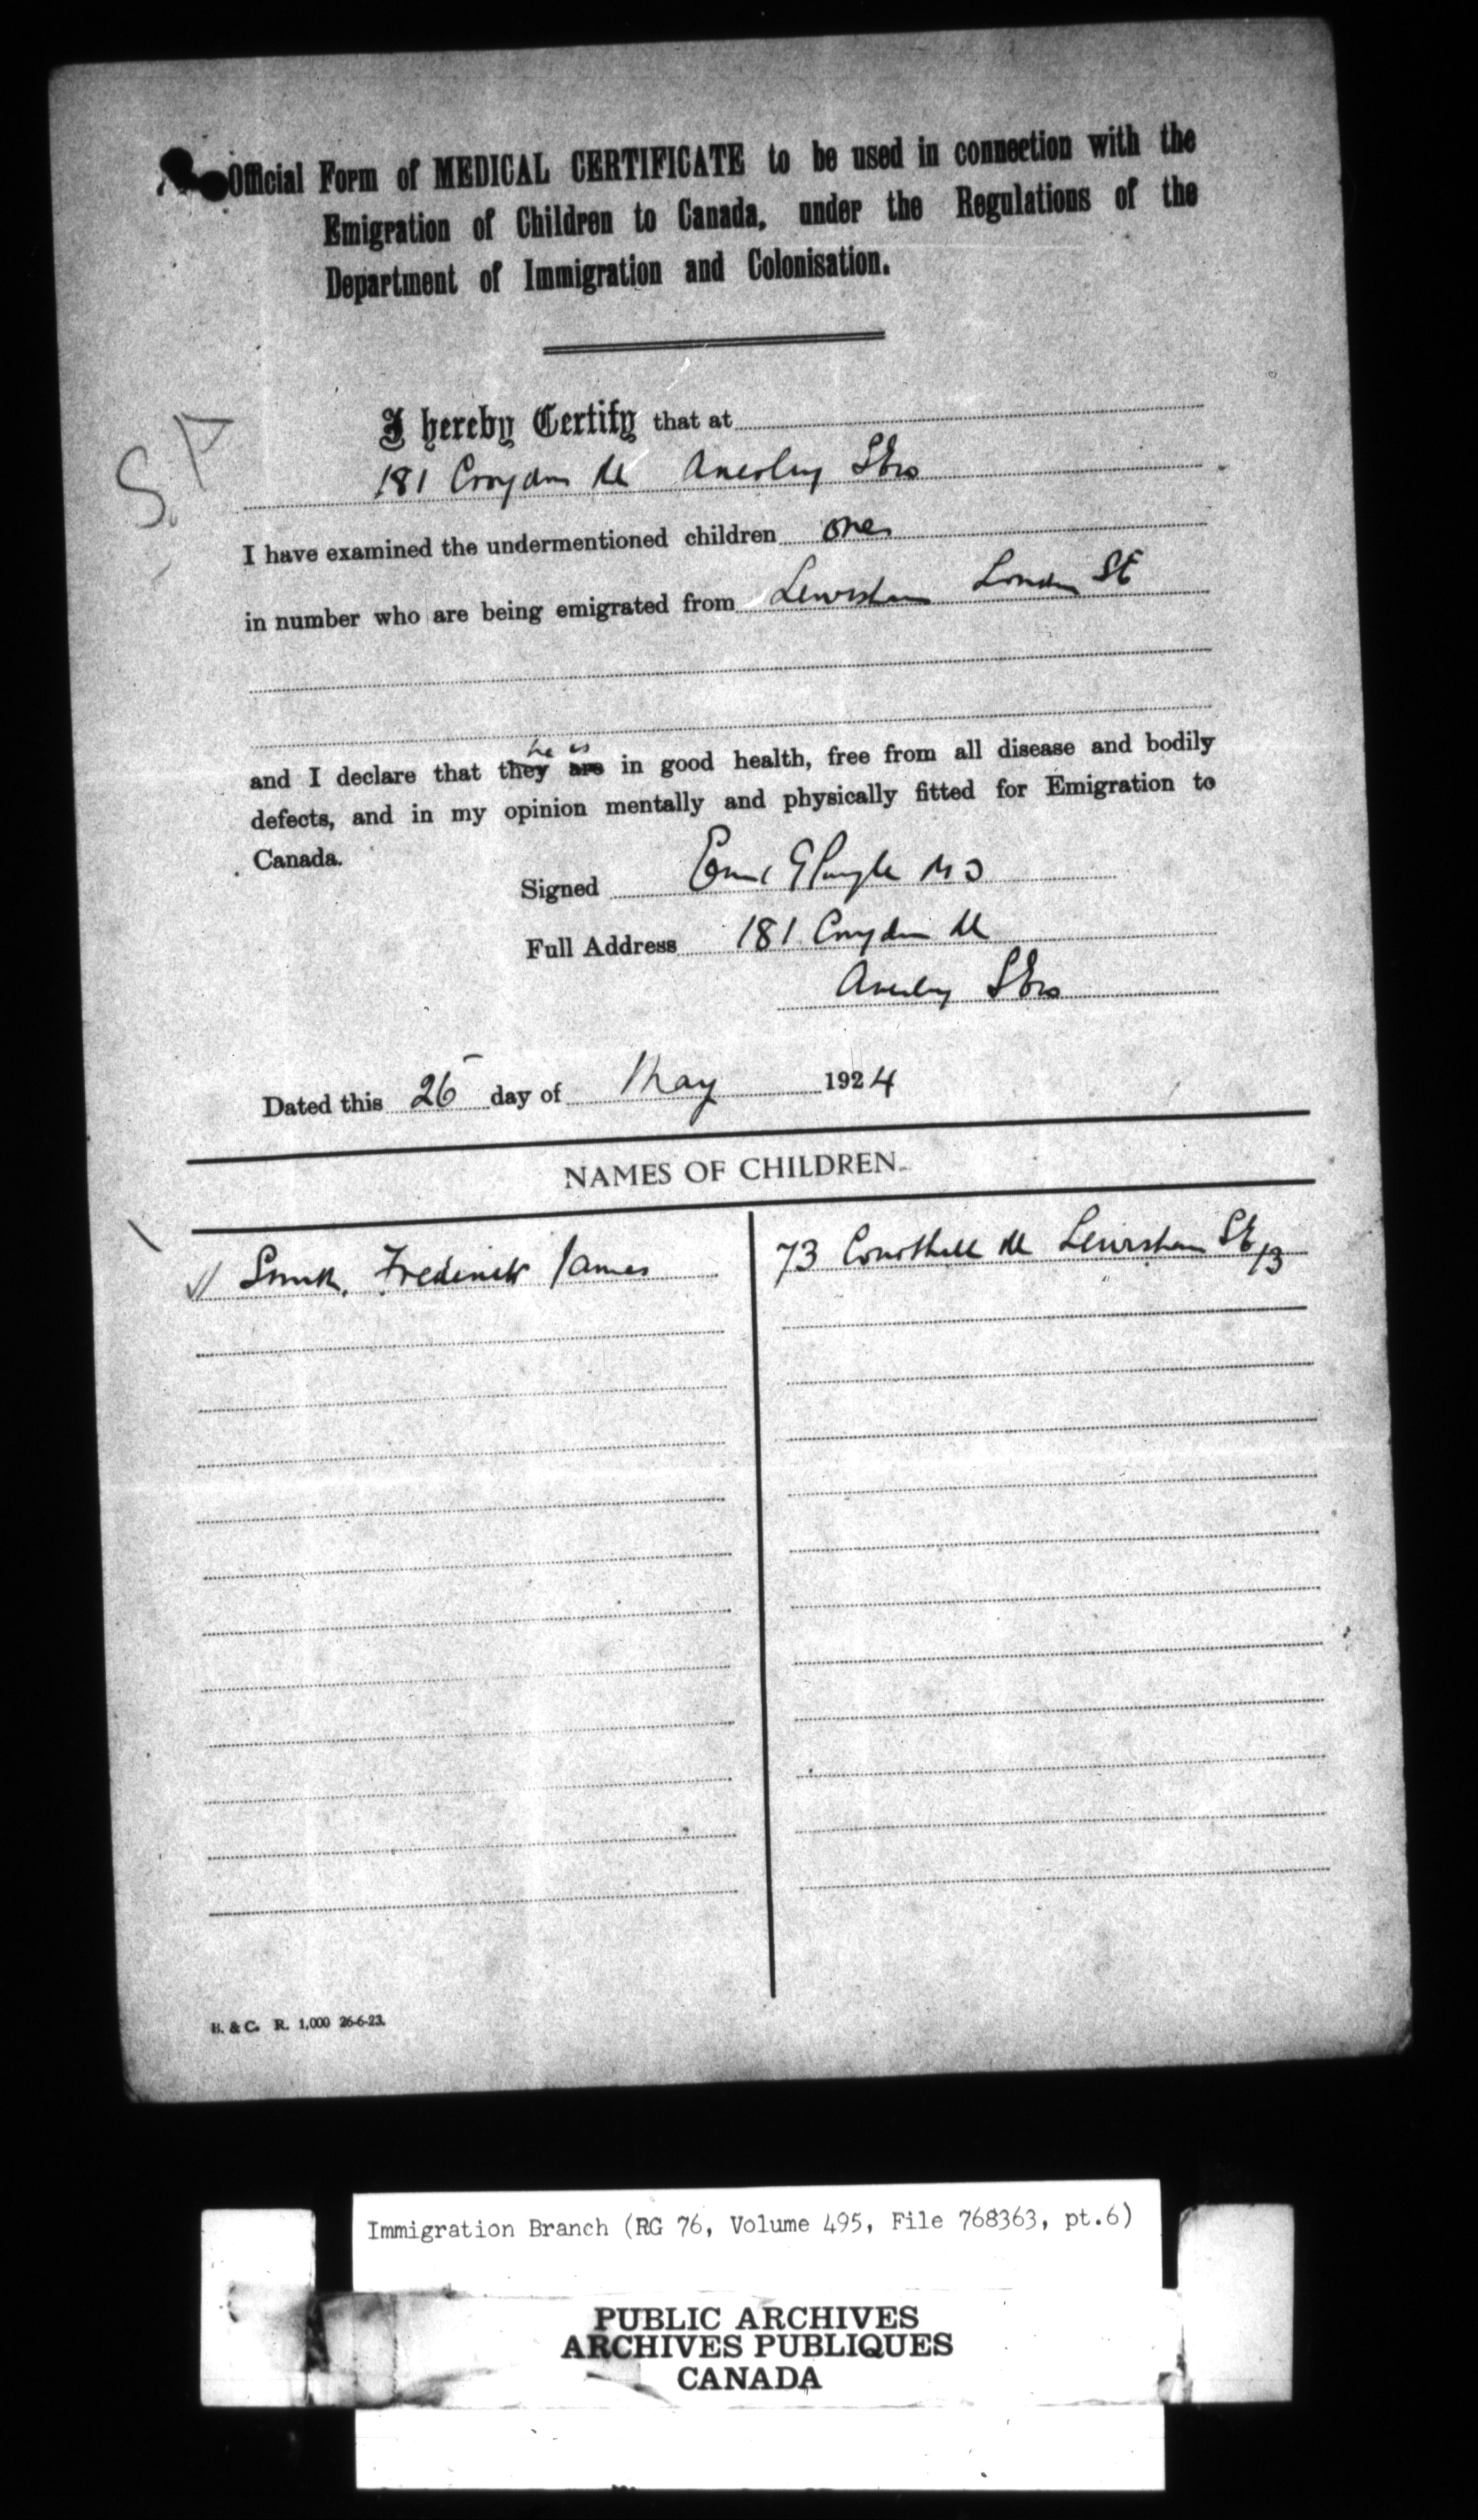 Official Form of MEDICAL CERTIFICATE to be used in connection with the
Emigration of Children to Canada, under the Regulations of the
Department of Immigration and Colonisation.
S.A
I hereby Certify that at
181 Croydon Rd Anerley SE20
I have examined the undermentioned children one
in number who are being emigrated from Lewisham London SE
he is
and I declare that they are in good health, free from all disease and bodily
defects, and in my opinion mentally and physically fitted for Emigration to
Canada.
Signed MD
Full Address 181 Croydon Rd
Anerley SE20
Dated this 26 day of May 1924
NAMES OF CHILDREN.
Frederick James 73 Rd Lewisham SE13
B. & C. R. 1,000 26-6-23.
Immigration Branch (RG 76, Volume 495, File 768363, pt.6)
PUBLIC ARCHIVES
ARCHIVES PUBLIQUES
CANADA